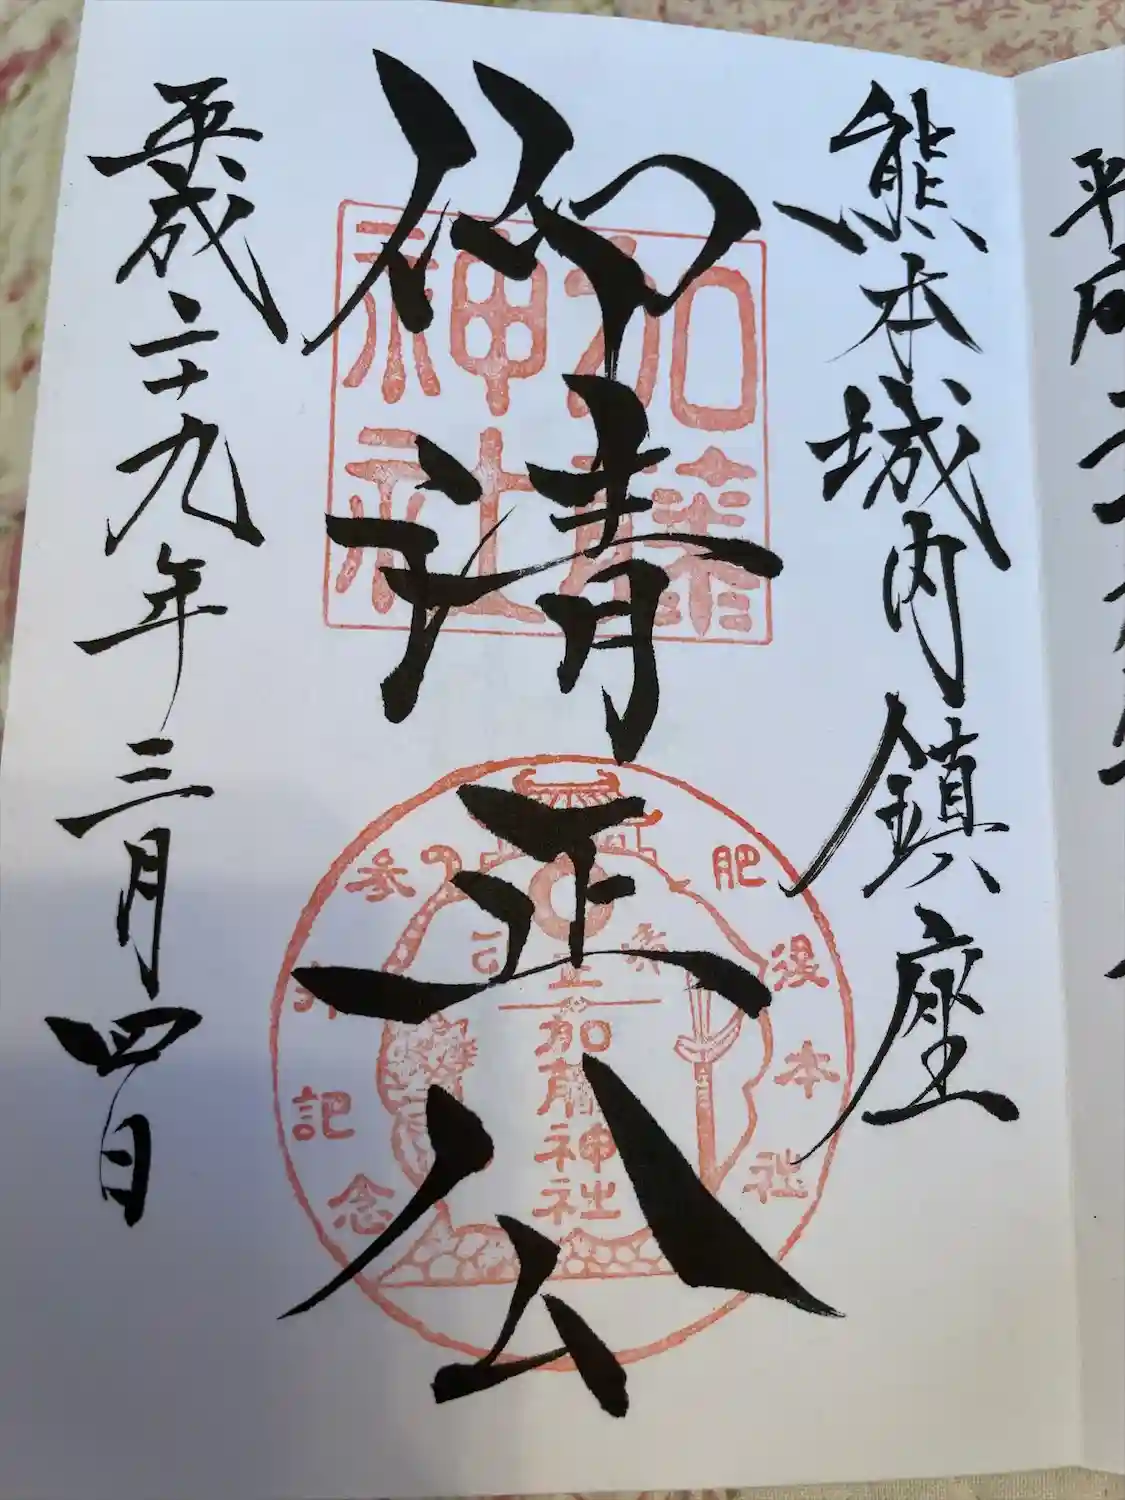 熊本城内鎮座
仰清正公
平成二十九年三月四日
加藤
神社
肥後本社
参拝記念
加藤神社